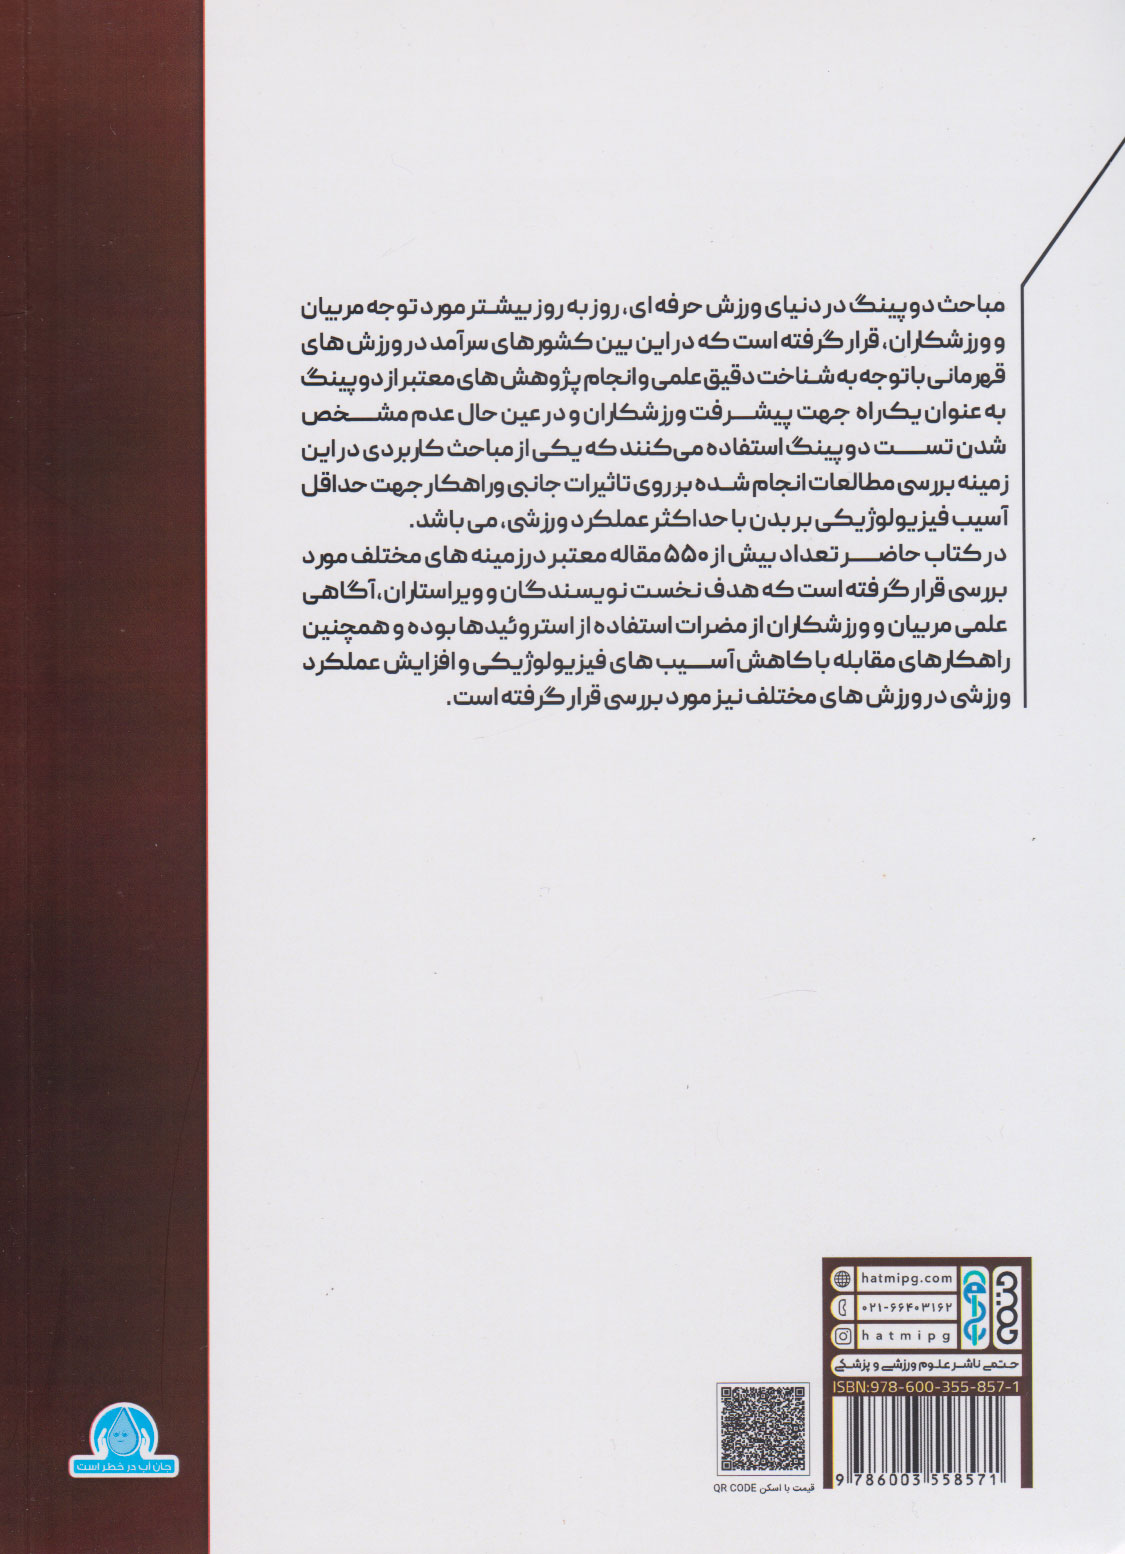 مباحث دوپینگ در دنیای ورزش حرفه ای، روز به روز بیشتر مورد توجه مربیان
و ورزشکاران، قرار گرفته است که در این بین کشورهای سرآمد در ورزش های
قهرمانی با توجه به شناخت دقیق علمی و انجام پژوهش های معتبر از دوپینگ
به عنوان یک راه جهت پیشرفت ورزشکاران و در عین حال عدم مشخص
شدن تست دوپینگ استفاده می‌کنند که یکی از مباحث کاربردی در این
زمینه بررسی مطالعات انجام شده بر روی تاثیرات جانبی و راهکار جهت حداقل
آسیب فیزیولوژیکی بر بدن با حداکثر عملکرد ورزشی، می باشد.
در کتاب حاضر تعداد بیش از ۵۵۰ مقاله معتبر در زمینه های مختلف مورد
بررسی قرار گرفته است که هدف نخست نویسندگان و ویراستاران، آگاهی
علمی مربیان و ورزشکاران از مضرات استفاده از استروئیدها بوده و همچنین
راهکارهای مقابله با کاهش آسیب های فیزیولوژیکی و افزایش عملکرد
ورزشی در ورزش های مختلف نیز مورد بررسی قرار گرفته است.
hatmipg.com
۰۲۱-۶۶۴۰۳۱۶۲
hatmipg
حتمی
حتمی ناشر علوم ورزشی و پزشکی
ISBN:978-600-355-857-1
9 786003 558571
قیمت با اسکن QR CODE
جان آب در خطر است